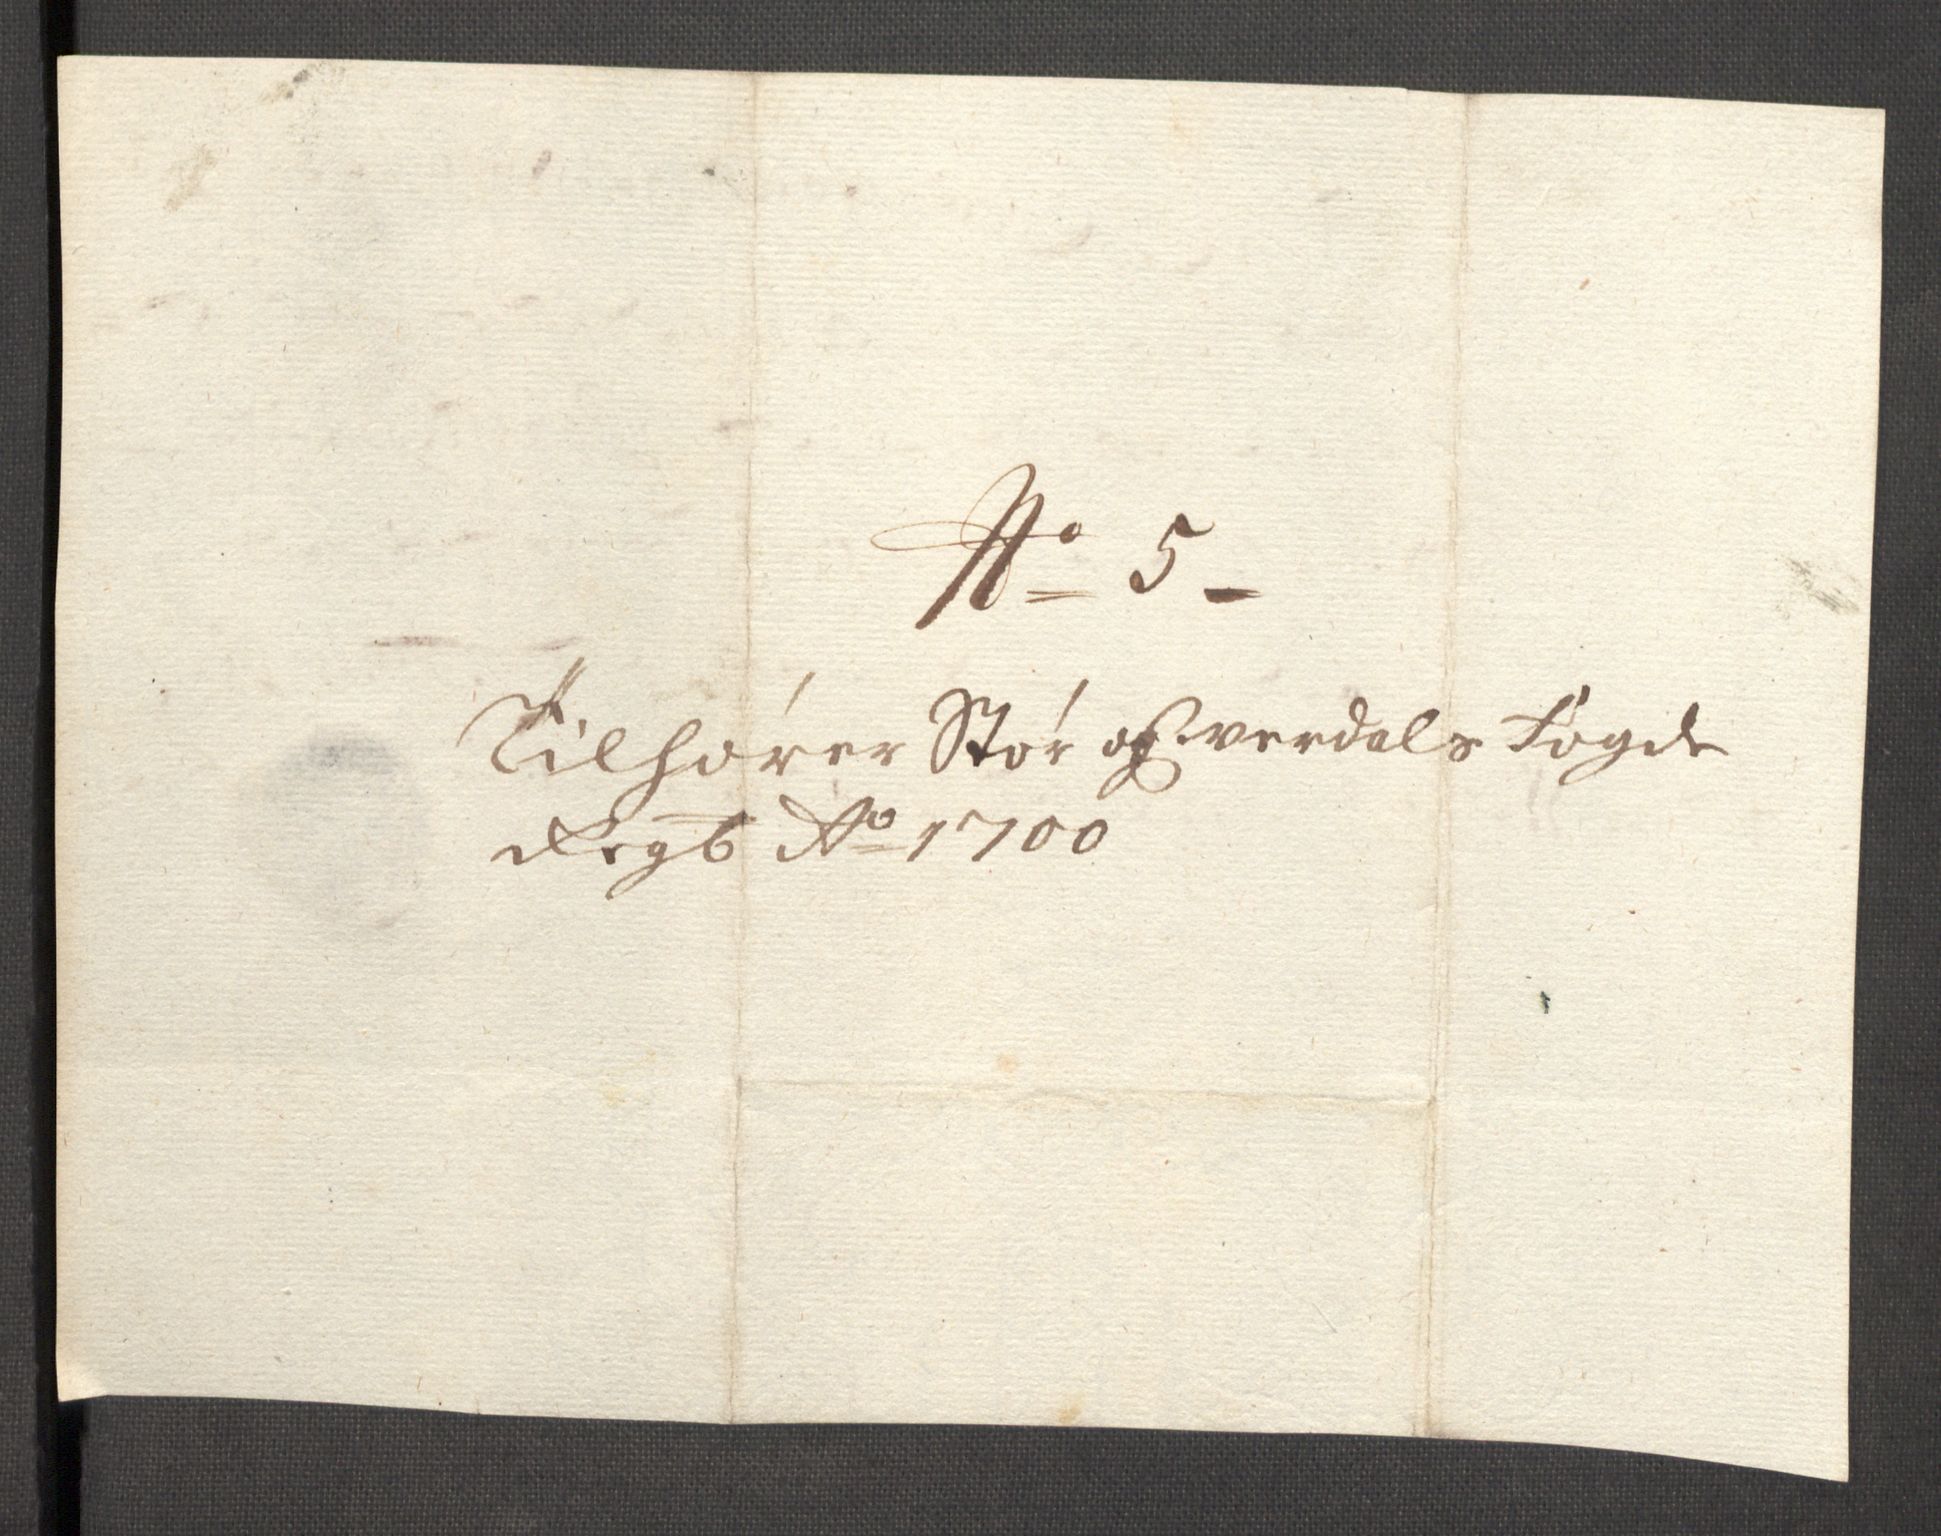 No 5 -
Tilhører Stør og Værdals Fogde
Regb Ao 1700